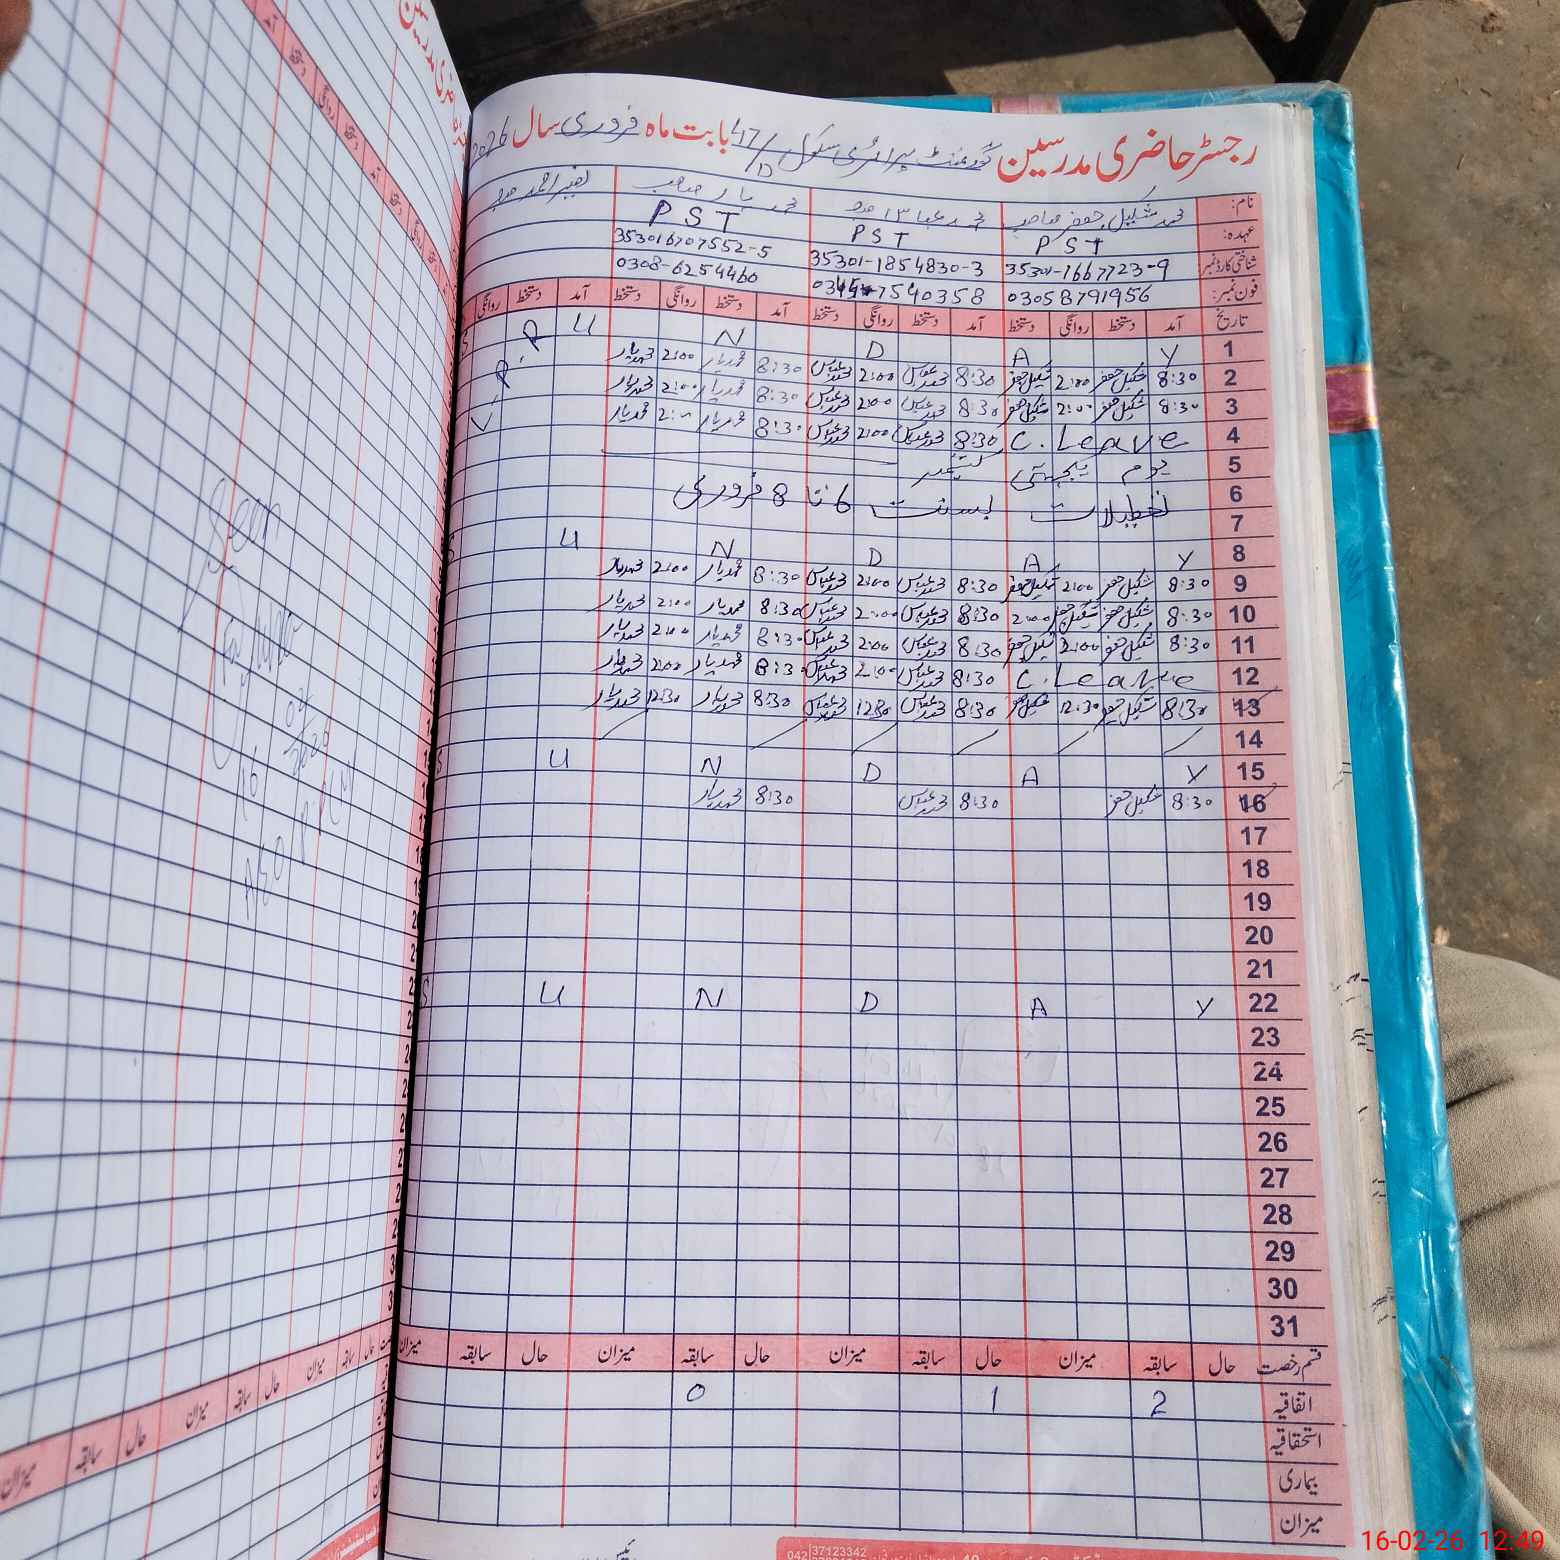 رجسٹر حاضری مدرسین گورنمنٹ پرائمری سکول 17/D بابت ماہ فروری سال 2026
نام: محمد شکیل جعفر صاحب محمد عباس محمد یار صاحب
عہدہ: PST PST PST
شناختی کارڈ نمبر 35301-1667723-9 35301-1854830-3 353016707552-5
فون نمبر: 03058791956 0345-7540358 0308-6254460
تاریخ آمد دستخط روانگی دستخط آمد دستخط روانگی دستخط آمد دستخط روانگی دستخط آمد دستخط روانگی
1 S U N D A Y
2 8:30 شکیل جعفر 2:00 شکیل جعفر 8:30 محمد عباس 2:00 محمد عباس 8:30 محمد یار 2:00 محمد یار
3 8:30 شکیل جعفر 2:00 شکیل جعفر 8:30 محمد عباس 2:00 محمد عباس 8:30 محمد یار 2:00 محمد یار
4 C. Leave 8:30 محمد عباس 2:00 محمد عباس 8:30 محمد یار 2:00 محمد یار
5 یوم یکجہتی کشمیر
6 تعطیلات بسنت 6 تا 8 فروری
7
8 S U N D A Y
9 8:30 شکیل جعفر 2:00 شکیل جعفر 8:30 محمد عباس 2:00 محمد عباس 8:30 محمد یار 2:00 محمد یار
10 8:30 شکیل جعفر 2:00 شکیل جعفر 8:30 محمد عباس 2:00 محمد عباس 8:30 محمد یار 2:00 محمد یار
11 8:30 شکیل جعفر 2:00 شکیل جعفر 8:30 محمد عباس 2:00 محمد عباس 8:30 محمد یار 2:00 محمد یار
12 C. Leave 8:30 محمد عباس 2:00 محمد عباس 8:30 محمد یار 2:00 محمد یار
13 8:30 شکیل جعفر 12:30 شکیل جعفر 8:30 محمد عباس 12:30 محمد عباس 8:30 محمد یار 12:30 محمد یار
14
15 S U N D A Y
16 8:30 شکیل جعفر 8:30 محمد عباس 8:30 محمد یار
17
18
19
20
21
22 S U N D A Y
23
24
25
26
27
28
29
30
31
قسم رخصت حال سابقہ میزان حال سابقہ میزان حال سابقہ میزان حال سابقہ میزان
اتفاقیہ 2 1 0
استحقاقیہ
بیماری
میزان
042 37123342
Seen
16/02/2026
حال سابقہ میزان حال سابقہ میزان
16-02-26 12:49